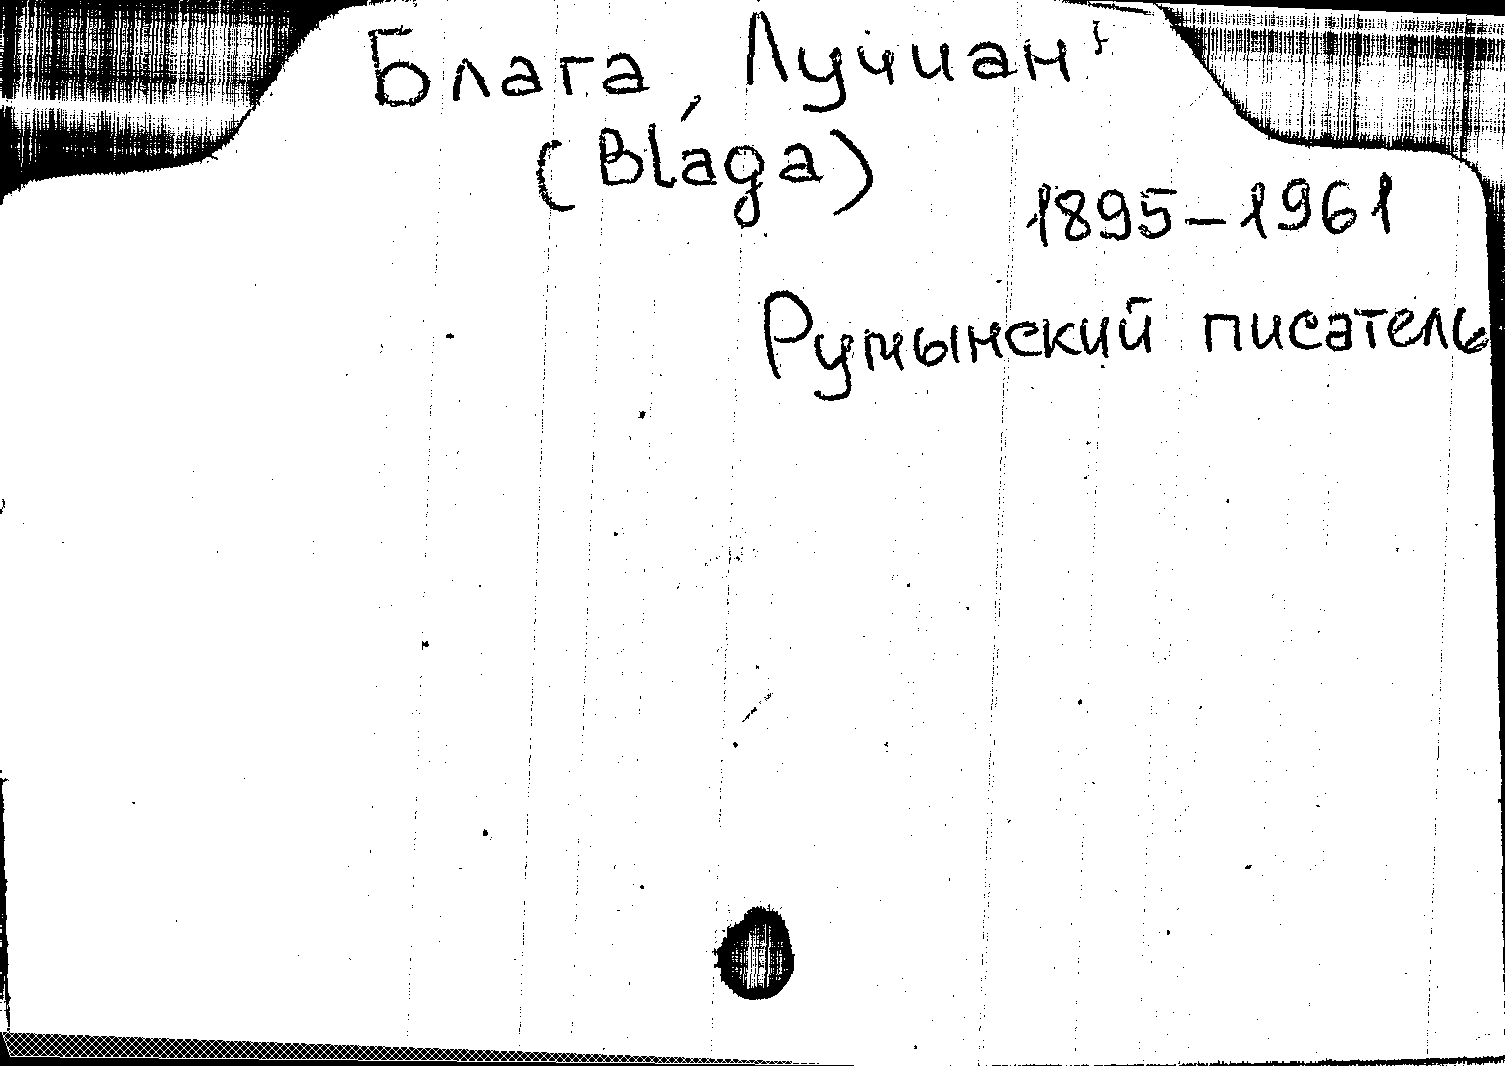 Блага, Лучиан
(Blága)
1895–1961
Румынский писатель